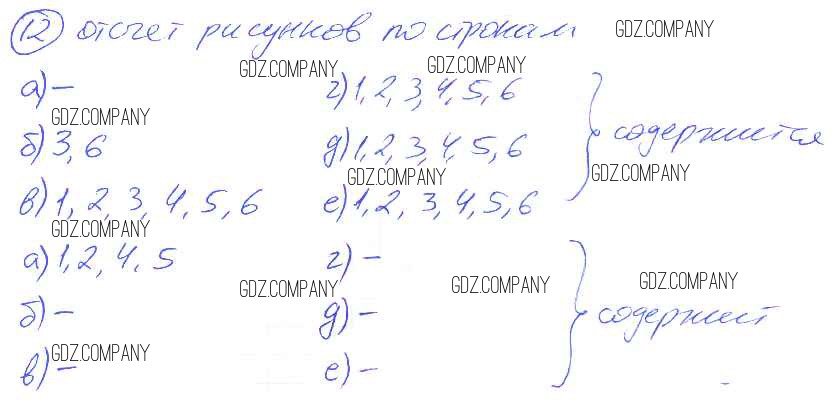 12 отсчет рисунков по строкам GDZ.COMPANY
GDZ.COMPANY GDZ.COMPANY
а) – г) 1, 2, 3, 4, 5, 6
GDZ.COMPANY
б) 3, 6 д) 1, 2, 3, 4, 5, 6 содержится
GDZ.COMPANY GDZ.COMPANY
в) 1, 2, 3, 4, 5, 6 е) 1, 2, 3, 4, 5, 6
GDZ.COMPANY
а) 1, 2, 4, 5 г) –
GDZ.COMPANY GDZ.COMPANY GDZ.COMPANY
б) – д) – содержит
GDZ.COMPANY
в) – е) –